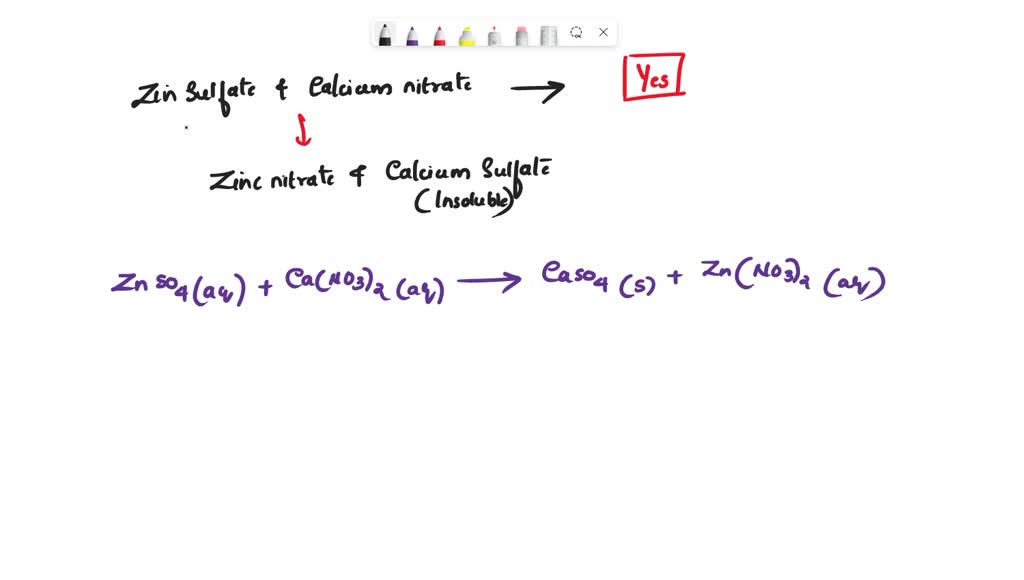 Zin Sulfate & Calcium nitrate → Yes
Zinc nitrate & Calcium Sulfate
(Insoluble)
ZnSO4(aq) + Ca(NO3)2(aq) → CaSO4(s) + Zn(NO3)2(aq)